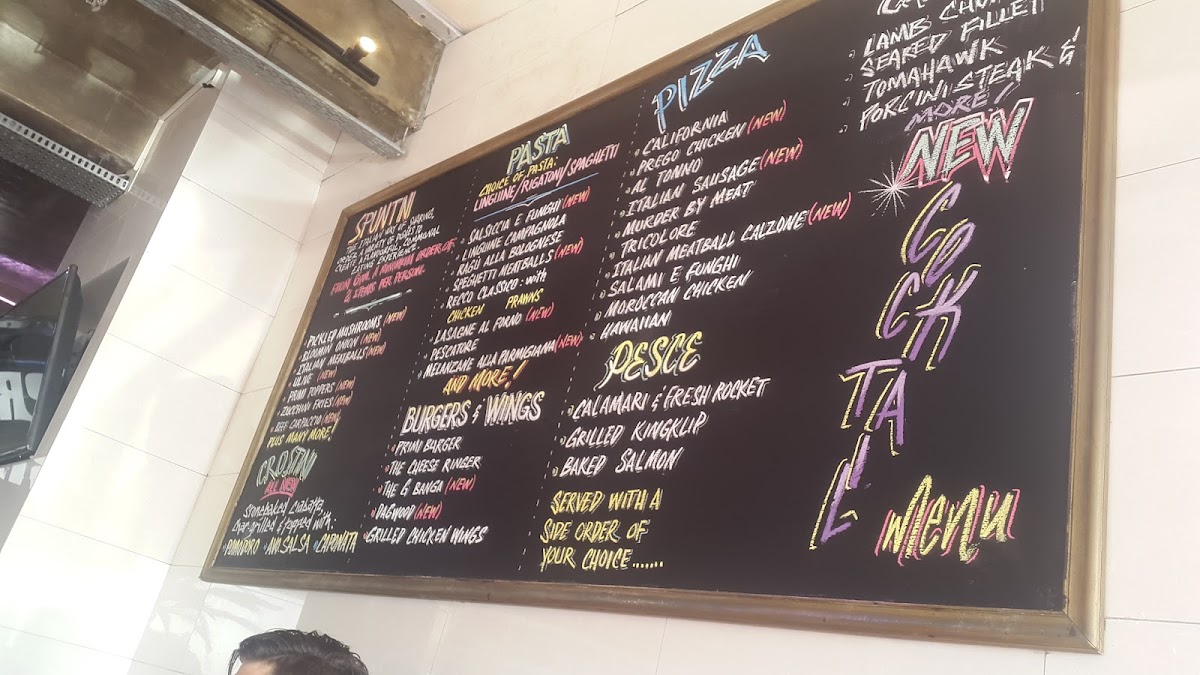 SPUNTNI
THE ITALIAN WAY OF SHARING,
ORDER A VARIETY OF DISHES TO
CREATE A FLAVOURFUL, COMMUNAL
EATING EXPERIENCE.
FROM
A MINIMUM ORDER OF
2 ITEMS PER PERSON.
PICKLED MUSHROOMS (NEW)
BLOOMIN ONION (NEW)
ITALIAN MEATBALLS (NEW)
OLIVE (NEW)
PRIMI TOPPERS (NEW)
ZUCCHINI FRIES (NEW)
BEEF CARPACCIO (NEW)
PLUS MANY MORE!
CROSTINI
ALL NEW
Stonebaked Ciabatta,
Chargrilled & topped with:
POMODORO • AVO SALSA • CAPONATA
PASTA
CHOICE OF PASTA:
LINGUINE/RIGATONI/SPAGHETTI
SALSICCIA E FUNGHI (NEW)
LINGUINE CAMPAGNOLA
RAGÙ ALLA BOLOGNESE
SPEGHETTI MEATBALLS (NEW)
RECCO CLASSICO: with
CHICKEN PRAWNS
LASAGNE AL FORNO (NEW)
PESCATORE
MELANZANE ALLA PARMIGIANA (NEW)
AND MORE!
BURGERS & WINGS
PRIMI BURGER
THE CHEESE RINGER
THE G BANGA (NEW)
DAGWOOD (NEW)
GRILLED CHICKEN WINGS
PIZZA
CALIFORNIA
PREGO CHICKEN (NEW)
AL TONNO
ITALIAN SAUSAGE (NEW)
MURDER BY MEAT
TRICOLORE
ITALIAN MEATBALL CALZONE (NEW)
SALAMI E FUNGHI
MOROCCAN CHICKEN
HAWAIIAN
PESCE
CALAMARI & FRESH ROCKET
GRILLED KINGKLIP
BAKED SALMON
SERVED WITH A
SIDE ORDER OF
YOUR CHOICE.......
LAMB
SEARED FILLET
TOMAHAWK
PORCINI STEAK &
MORE!
NEW
COCKTAIL
Menu